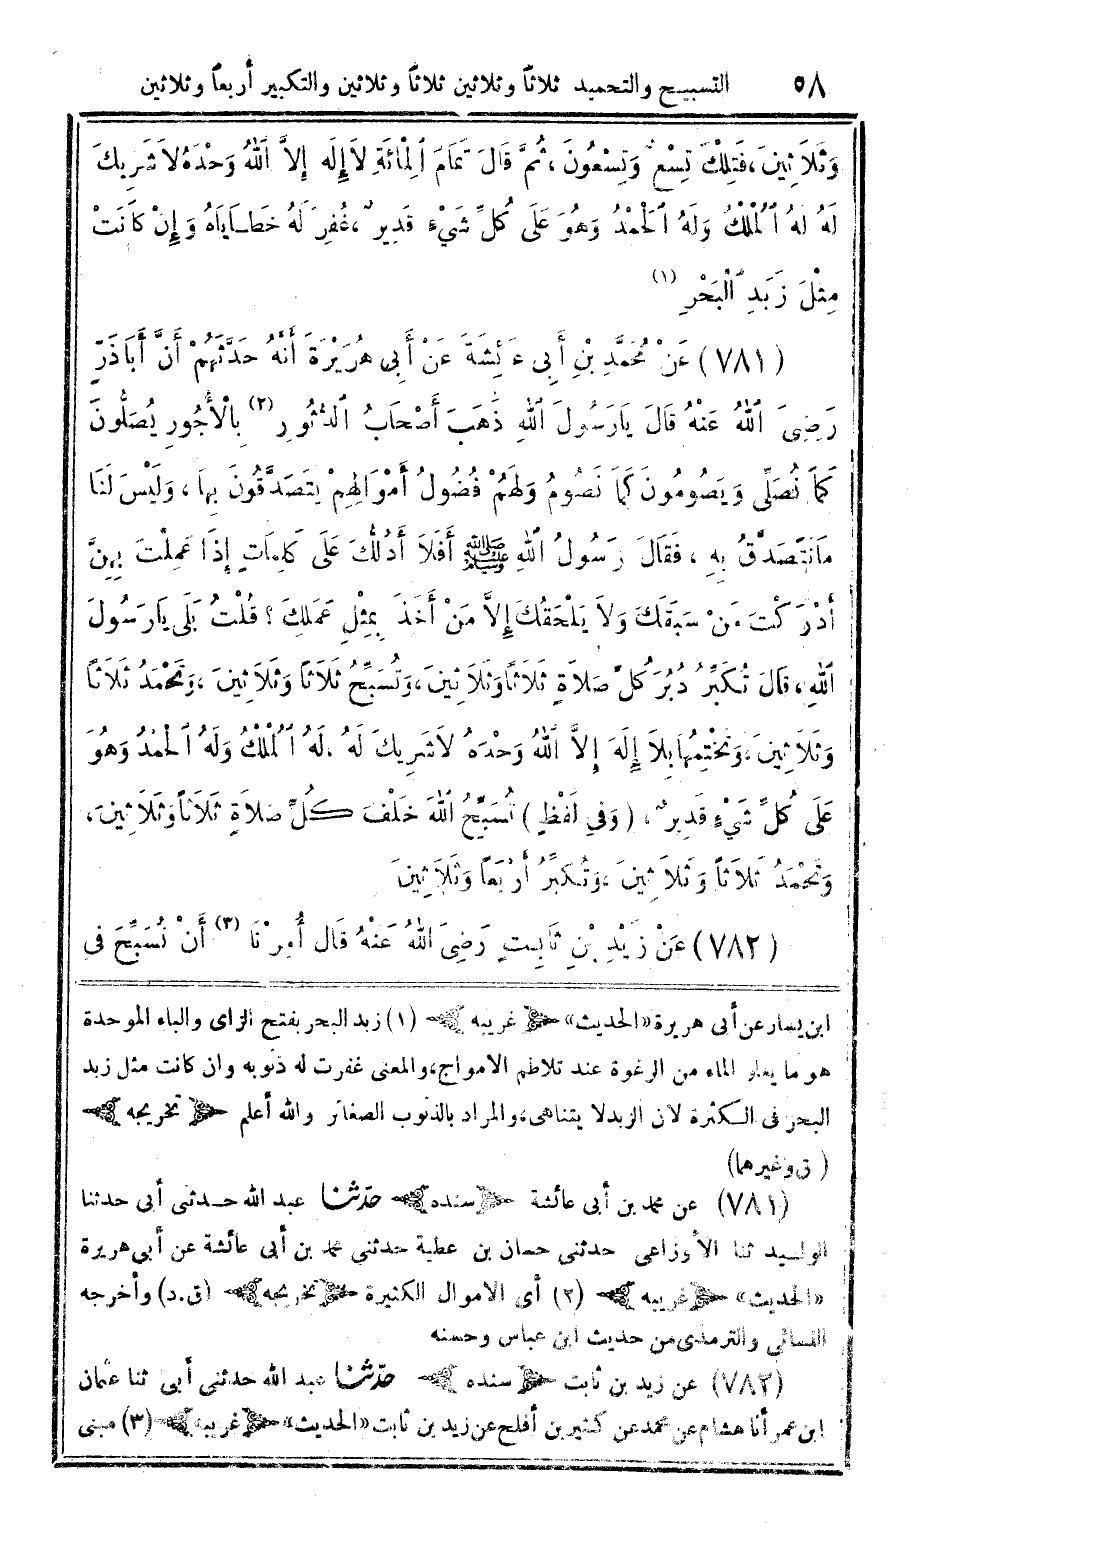 ٥٨ التسبيح والتحميد ثلاثاً وثلاثين ثلاثاً وثلاثين والتكبير أربعاً وثلاثين
وَثَلاَثِينَ، فَتِلْكَ تِسْعٌ وَتِسْعُونَ، ثُمَّ قَالَ تَمَامَ ٱلْمِائَةِ لاَ إِلَه إِلاَّ ٱللهُ وَحْدَهُ لاَ شَرِيكَ
لَهُ لهُ ٱلْمُلْكُ وَلَهُ ٱلْحَمْدُ وَهُوَ عَلَى كُلِّ شَيْءٍ قَدِيرٌ، غُفِرَ لَهُ خَطَايَاهُ وَإِنْ كَانَتْ
مِثْلَ زَبَدِ ٱلْبَحْرِ (١)
(٧٨١) عَنْ مُحَمَّدِ بْنِ أَبِى عَائِشَةَ عَنْ أَبِى هُرَيْرَةَ أَنَّهُ حَدَّثَهُمْ أَنَّ أَبَاذَرٍّ
رَضِىَ ٱللهُ عَنْهُ قَالَ يَارَسُولَ ٱللهِ ذَهَبَ أَصْحَابُ ٱلدُّثُورِ (٢) بِالْأُجُورِ يُصَلُّونَ
كَمَا نُصَلِّى وَيَصُومُونَ كَمَا نَصُومُ وَلَهُمْ فُضُولُ أَمْوَالِهِمْ يَتَصَدَّقُونَ بِهَا، وَلَيْسَ لَنَا
مَانَتَصَدَّقُ بِهِ، فَقَالَ رَسُولُ ٱللهِ ﷺ أَفَلَا أَدُلُّكَ عَلَى كَلِمَاتٍ إِذَا عَمِلْتَ بِهِنَّ
أَدْرَكْتَ مَنْ سَبَقَكَ وَلاَ يَلْحَقُكَ إِلاَّ مَنْ أَخَذَ بِمِثْلِ عَمَلِكَ ؟ قُلْتُ بَلَى يَارَسُولَ
ٱللهِ، قَالَ تُكَبِّرُ دُبُرَ كُلِّ صَلاَةٍ ثَلاَثًا وَثَلاَثِينَ، وَتُسَبِّحُ ثَلاَثاً وَثَلاَثِينَ، وَتَحْمَدُ ثَلاَثاً
وَثَلاَثِينَ، وَتَخْتِمُهَا بِلاَ إِلَهَ إِلاَّ ٱللهُ وَحْدَهُ لاَشَرِيكَ لَهُ. لَهُ ٱلْمُلْكُ وَلَهُ ٱلْحَمْدُ وَهُوَ
عَلَى كُلِّ شَيْءٍ قَدِيرٌ، (وَفِى لَفْظٍ) تُسَبِّحُ ٱللهَ خَلْفَ كُلِّ صَلاَةٍ ثَلاَثاً وَثَلاَثِينَ،
وَتَحْمَدُ ثَلاَثاً وَثَلاَثِينَ، وَتُكَبِّرُ أَرْبَعاً وَثَلاَثِينَ
(٧٨٢) عَنْ زَيْدِ بْنِ ثَابِتٍ رَضِىَ ٱللهُ عَنْهُ قَالَ أُمِرْنَا (٣) أَنْ نُسَبِّحَ فِى
ابن يسار عن أبى هريرة «الحديث» ﴿غريبه﴾ (١) زبد البحر بفتح الزاى والباء الموحدة
هو ما يعلو الماء من الرغوة عند تلاطم الامواج، والمعنى غفرت له ذنوبه وان كانت مثل زبد
البحر فى الكثرة لان الزبد لا يتناهى، والمراد بالذنوب الصغائر والله أعلم ﴿تخريجه﴾
(ق وغيرهما)
(٧٨١) عن محمد بن أبى عائشة ﴿سنده﴾ حدّثنا عبد الله حدثنى أبى حدثنا
الوليد ثنا الأوزاعى حدثنى حسان بن عطية حدثنى محمد بن أبى عائشة عن أبى هريرة
«الحديث» ﴿غريبه﴾ (٢) أى الاموال الكثيرة ﴿تخريجه﴾ (ق.د) وأخرجه
النسائى والترمذى من حديث ابن عباس وحسنه
(٧٨٢) عن زيد بن ثابت ﴿سنده﴾ حدّثنا عبد الله حدثنى أبى ثنا عثمان
ابن عمر أنا هشام عن محمد عن كثير بن أفلح عن زيد بن ثابت «الحديث» ﴿غريبه﴾ (٣) مبنى